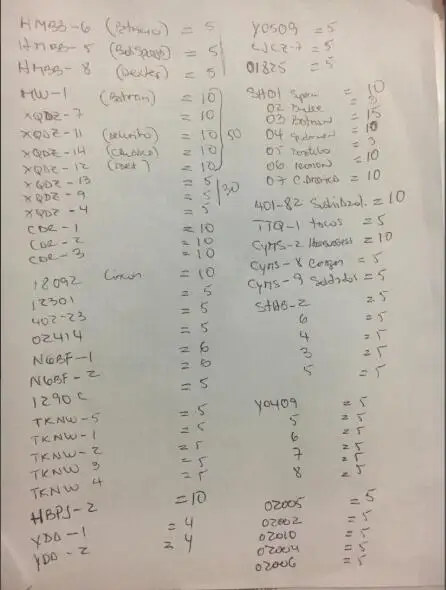 HMBB-6 (Batman) = 5
HMBB-5 = 5
HMBB-8 (Dexter) = 5
MW-1 (Batman) = 10
XQDZ-7 = 10
XQDZ-11 = 10 50
XQDZ-14 = 10
XQDZ-12 = 10
XQDZ-13 = 5
XQDZ-9 = 5 30
XQDZ-4 = 5
CDR-1 = 10
CDR-2 = 10
CDR-3 = 10
18092 = 10
12301 = 5
402-23 = 5
02414 = 5
NGBF-1 = 6
NGBF-2 = 6
1290C = 5
TKNW-5 = 5
TKNW-1 = 5
TKNW-2 = 5
TKNW 3 = 5
TKNW 4 = 5
HBPS-2 = 10
YDD-1 = 4
YDD-2 = 4
Y0509 = 5
= 5
01825 = 5
SH01 = 10
02
03 Batman = 15
04 = 10
05
06 = 10
07 C. America = 10
401-82 = 10
TTQ-1 = 5
CYMS-2 = 10
CYMS-8 = 5
CYMS-9 Soldados = 5
SHAB-2 = 5
6 = 5
4 = 5
3 = 5
5 = 5
Y0409 = 5
5 = 5
6 = 5
7 = 5
8 = 5
02005 = 5
02002 = 5
02010 = 5
02004 = 5
02006 = 5